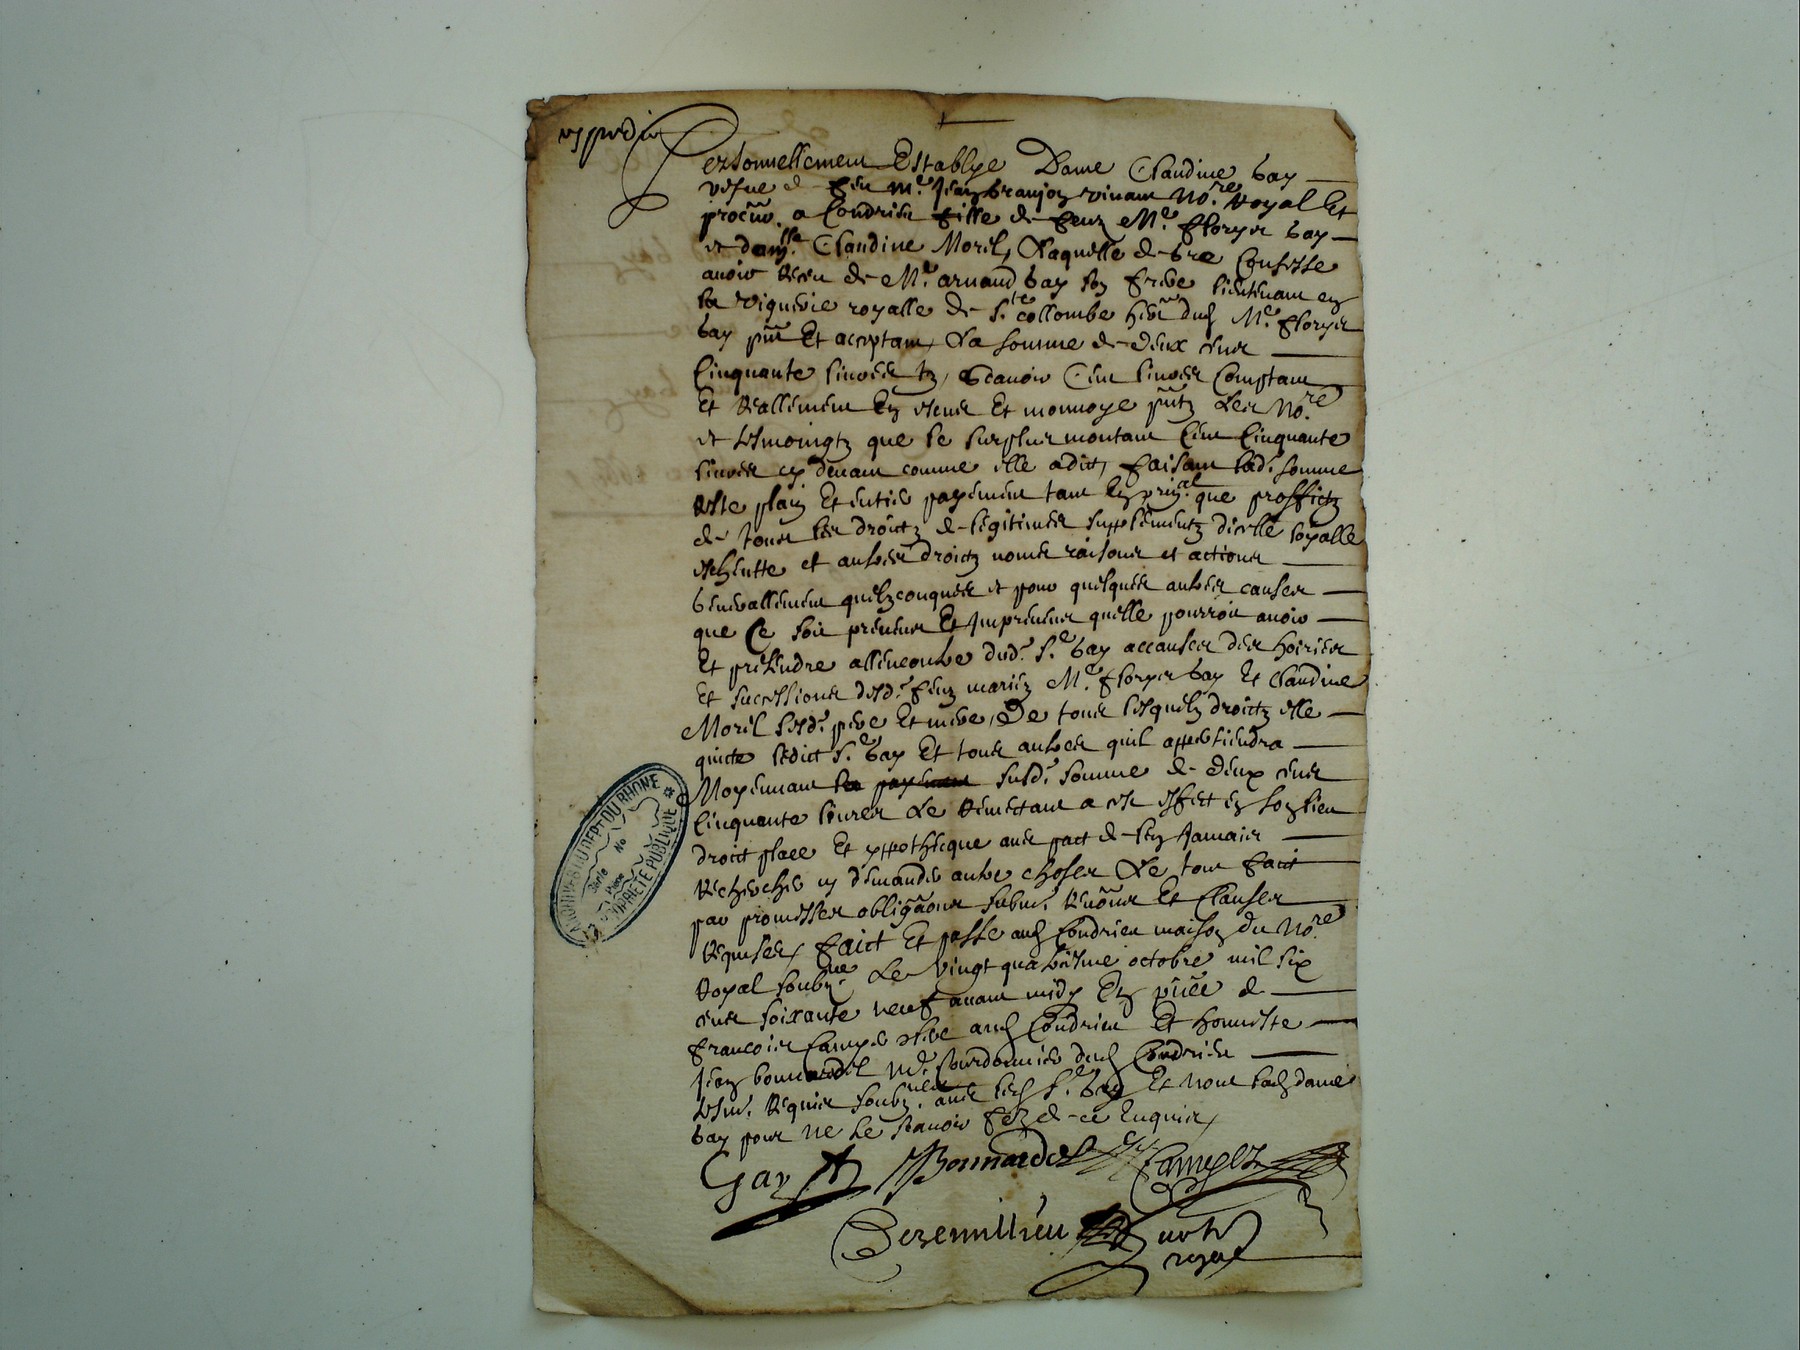 expedié
Personnellement Establye Dame Claudine Gay
vefue de feu Me Jean Granjon vivant No.re Royal Et
procũr. a Condrieu fille de feuz Me. Floryz Gay
et dam.lle Claudine Morel, Laquelle de gre Confesse
avoir Receu de Me. arnaud Gay son frere lieutenant en
la viguerie royalle de S.te collombe heri dud Me. Floryz
Gay pnt Et acceptant, La somme de deux cens
Cinquante livres tz, Scavoir Cent livres Comptant
Et Reallement En escus Et monnoye pntz Les No.re
et tesmoingtz que le surplus montant Cent Cinquante
livres cy devant comme elle a dict, faisant lad. somme
Reste plain Et entier payement tant En prin.al que proffictz
de tous les droictz de legitimes supplementz dicelle loyalle
escheutte et autres droictz noms raisons et actions
Generallement quelzconques et pour quelques autres causes
que Ce soit presens Et Impresens quelle pourroit avoir
Et pretendre allencontre dud. S.r Gay accauses des hoiries
Et successions desd. feuz mariez Me. Floryz Gay Et Claudine
Morel sesd. pere Et mere, De tous lesquelz droictz elle
quicte ledict S.r Gay Et tous autres quil appertiendra
Moyennant la payement susd. somme de deux cens
Cinquante livres Le Remettant a cest effect en son lieu
droict place Et yppothecque avec pact de rien Jamais
Rechercher ny demander autre choses Le tout faict
par promesses obligãons subm. Renõns Et Clauses
Requises, faict Et passe aud Condrieu maison du No.re
Royal soubz.ne Le vingt quatriesme octobre mil six
cens soixante neuf avant midy En pnce de
francois Campez clerc aud Condrieu Et honneste
Jean bonnardel Me. Cordonnier dud Condrieu
tesm. Requis soubz.nes avec led S.r Gay Et non lad dame
Gay pour ne le scavoir fere de ce Enquise,
Gay Bonnardel Campez
Dezemillieu notr
royal
ARCHIVES DU DEPT DU RHONE
Série No
Pièce
PROPRIETE PUBLIQUE